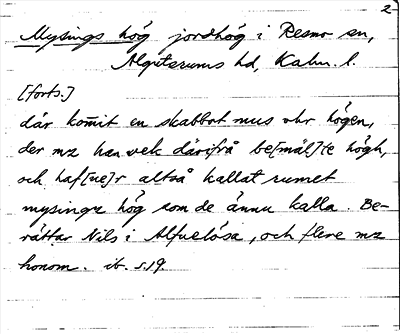 2
Mysings hög jordhög i Resmo sn,
Algutsrums hd, Kalm. l.
[forts.]
där kom̄it en skabbot mus vhr högen,
der mz han vek därifrå be[mäl]te högh,
och haf[ue]r altså kallat rumet
mysingz hög som de ännu kalla. Be-
rättar Nils i Alfuelösa, och flere mz
honom. ib. s.19.